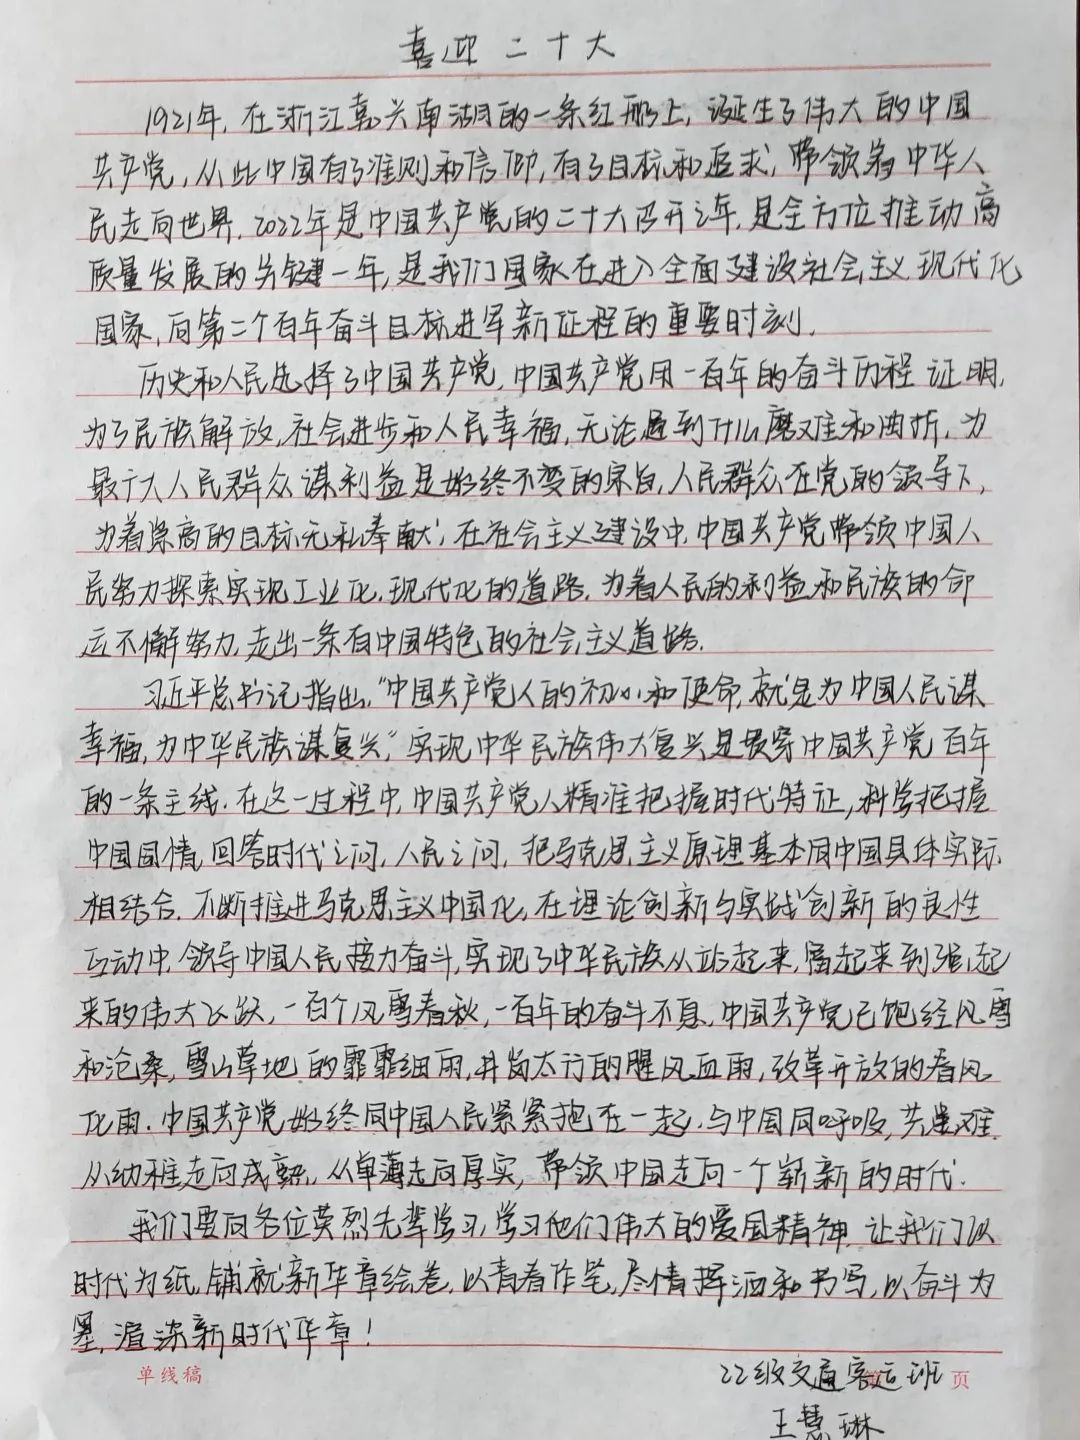 喜迎二十大
1921年，在浙江嘉兴南湖的一条红船上，诞生了伟大的中国
共产党，从此中国有了准则和信仰，有了目标和追求，带领着中华人
民走向世界。2022年是中国共产党的二十大召开之年，是全方位推动高
质量发展的关键一年，是我们国家在进入全面建设社会主义现代化
国家，向第二个百年奋斗目标进军新征程的重要时刻。
历史和人民选择了中国共产党，中国共产党用一百年的奋斗历程证明，
为了民族解放，社会进步和人民幸福，无论遇到什么磨难和曲折，为
最广大人民群众谋利益是始终不变的宗旨，人民群众在党的领导下，
为着崇高的目标无私奉献；在社会主义建设中，中国共产党带领中国人
民努力探索实现工业化，现代化的道路，为着人民的利益和民族的命
运不懈努力，走出一条有中国特色的社会主义道路。
习近平总书记指出，“中国共产党人的初心和使命，就是为中国人民谋
幸福，为中华民族谋复兴”，实现中华民族伟大复兴是贯穿中国共产党百年
的一条主线。在这一过程中，中国共产党人精准把握时代特证，科学把握
中国国情，回答时代之问，人民之问，把马克思主义原理基本同中国具体实际
相结合，不断推进马克思主义中国化，在理论创新与实践创新的良性
互动中，领导中国人民接力奋斗，实现了中华民族从站起来，富起来到强起
来的伟大飞跃，一百个风雪春秋，一百年的奋斗不息，中国共产党已饱经风雪
和沧桑，雪山草地的霏霏细雨，井岗太行的腥风血雨，改革开放的春风
化雨。中国共产党始终同中国人民紧紧抱在一起，与中国同呼吸，共患难，
从幼稚走向成熟，从单薄走向厚实，带领中国走向一个崭新的时代。
我们要向各位英烈先辈学习，学习他们伟大的爱国精神，让我们以
时代为纸，铺就新华章绘卷，以青春作笔，尽情挥洒和书写，以奋斗为
墨，渲染新时代华章！
单线稿 页
22级交通客运班
王慧琳